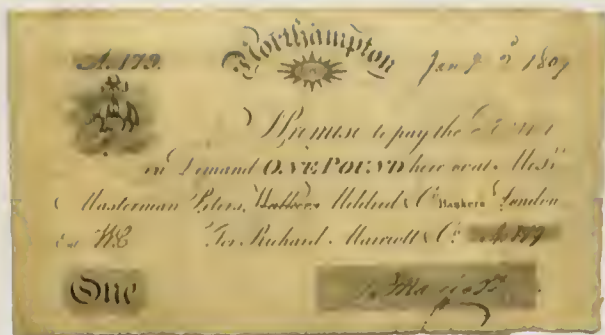 A. 179. Northampton Jan 9th 1809
I Promise to pay the
on Demand ONE POUND here or at Messrs
Masterman Peters, Walker Mildred & Co. Bankers London
For Richard Marriott & Co. No. 179
One